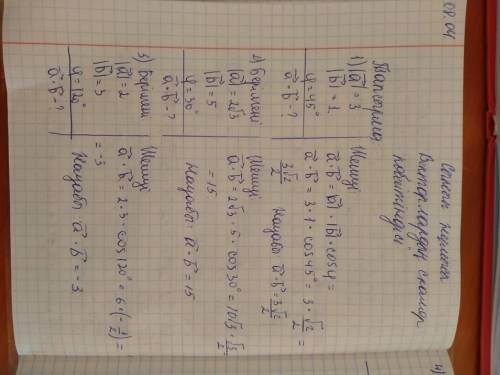 08.04.
Сынып жұмысы
Векторлардың скаляр
көбейтіндісі
Тапсырма
1) |a⃗| = 3
|b⃗| = 1
φ = 45°
a⃗ · b⃗ - ?
Шешуі
a⃗ · b⃗ = |a⃗| · |b⃗| · cos φ =
a⃗ · b⃗ = 3 · 1 · cos 45° = 3 · √2/2 =
3√2/2 Жауабы a⃗ · b⃗ = 3√2/2
2) Берілгені
|a⃗| = 2√3
|b⃗| = 5
φ = 30°
a⃗ · b⃗ - ?
Шешуі
a⃗ · b⃗ = 2√3 · 5 · cos 30° = 10√3 · √3/2
= 15
Жауабы: a⃗ · b⃗ = 15
3) Берілгені
|a⃗| = 2
|b⃗| = 3
φ = 120°
a⃗ · b⃗ - ?
Шешуі
a⃗ · b⃗ = 2 · 3 · cos 120° = 6 · (- 1/2) =
= -3
Жауабы a⃗ · b⃗ = - 3
4)